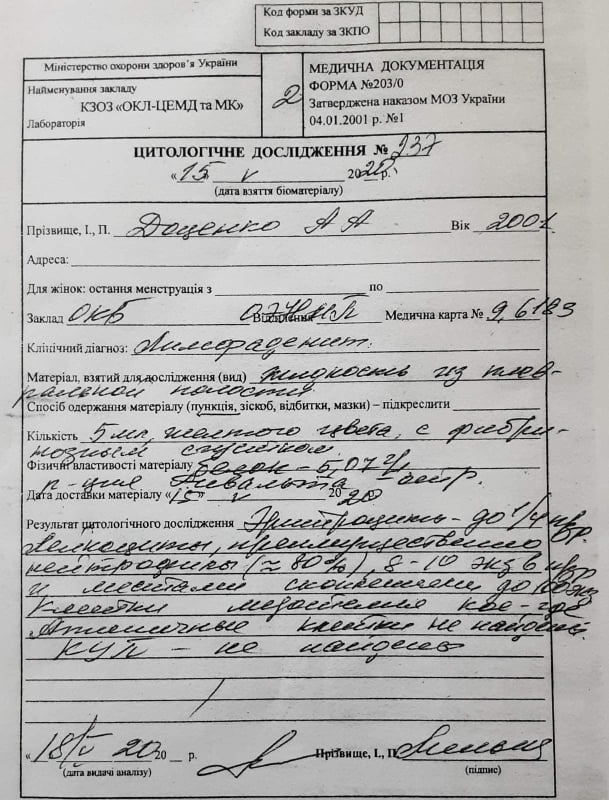 Код форми за ЗКУД
Код закладу за ЗКПО
Міністерство охорони здоров'я України
Найменування закладу
КЗОЗ «ОКЛ-ЦЕМД та МК»
Лабораторія
2
МЕДИЧНА ДОКУМЕНТАЦІЯ
ФОРМА №203/0
Затверджена наказом МОЗ України
04.01.2001 р. №1
ЦИТОЛОГІЧНЕ ДОСЛІДЖЕННЯ № 237
«15 V 2020 р.
(дата взяття біоматеріалу)
Прізвище, І., П. Доценко А А Вік 2001
Адреса:
Для жінок: остання менструація з по
Заклад ОКБ Відділення Медична карта № 9,6183
Клінічний діагноз: Лимфаденит.
Матеріал, взятий для дослідження (вид) жидкость из плев-
ральной полости
Спосіб одержання матеріалу (пункція, зіскоб, відбитки, мазки) – підкреслити
Кількість 5 мл, желтого цвета, с фибри-
нозным сгустком.
Фізичні властивості матеріалу белок - 5,07
р-ция Ривальта
Дата доставки матеріалу «15» V 2020
Результат цитологічного дослідження Эритроциты - до 1/4 п/зр.
Лейкоциты, преимущественно
нейтрофилы (≈ 80%), 8-10 экз в п/зр
и местами скоплениями до 100 экз
Клетки мезотелия кое-где
Атипичные клетки не найдены.
КУП - не найдены
«18/V 2020 р.
(дата видачі аналізу)
Прізвище, І., П.
(підпис)